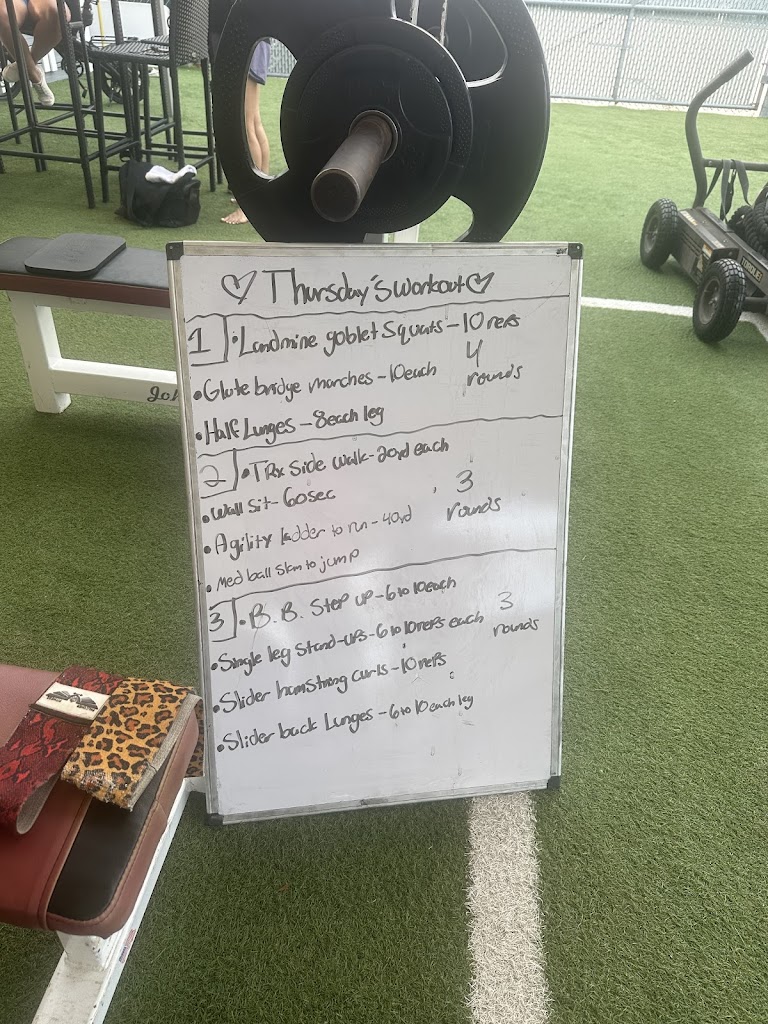 ♡ Thursday's Workout ♡
1 • Landmine goblet Squats - 10 reps
• Glute bridge marches - 10 each
4 rounds
• Half Lunges - 8 each leg
2 • TRX Side walk - 20yd each
• Wall Sit - 60sec
3 rounds
• Agility ladder to run - 40yd
• Med ball slam to jump
3 • B.B. Step up - 6 to 10 each
• Single leg Stand-ups - 6 to 10 reps each
3 rounds
• Slider hamstring curls - 10 reps
• Slider back Lunges - 6 to 10 each leg